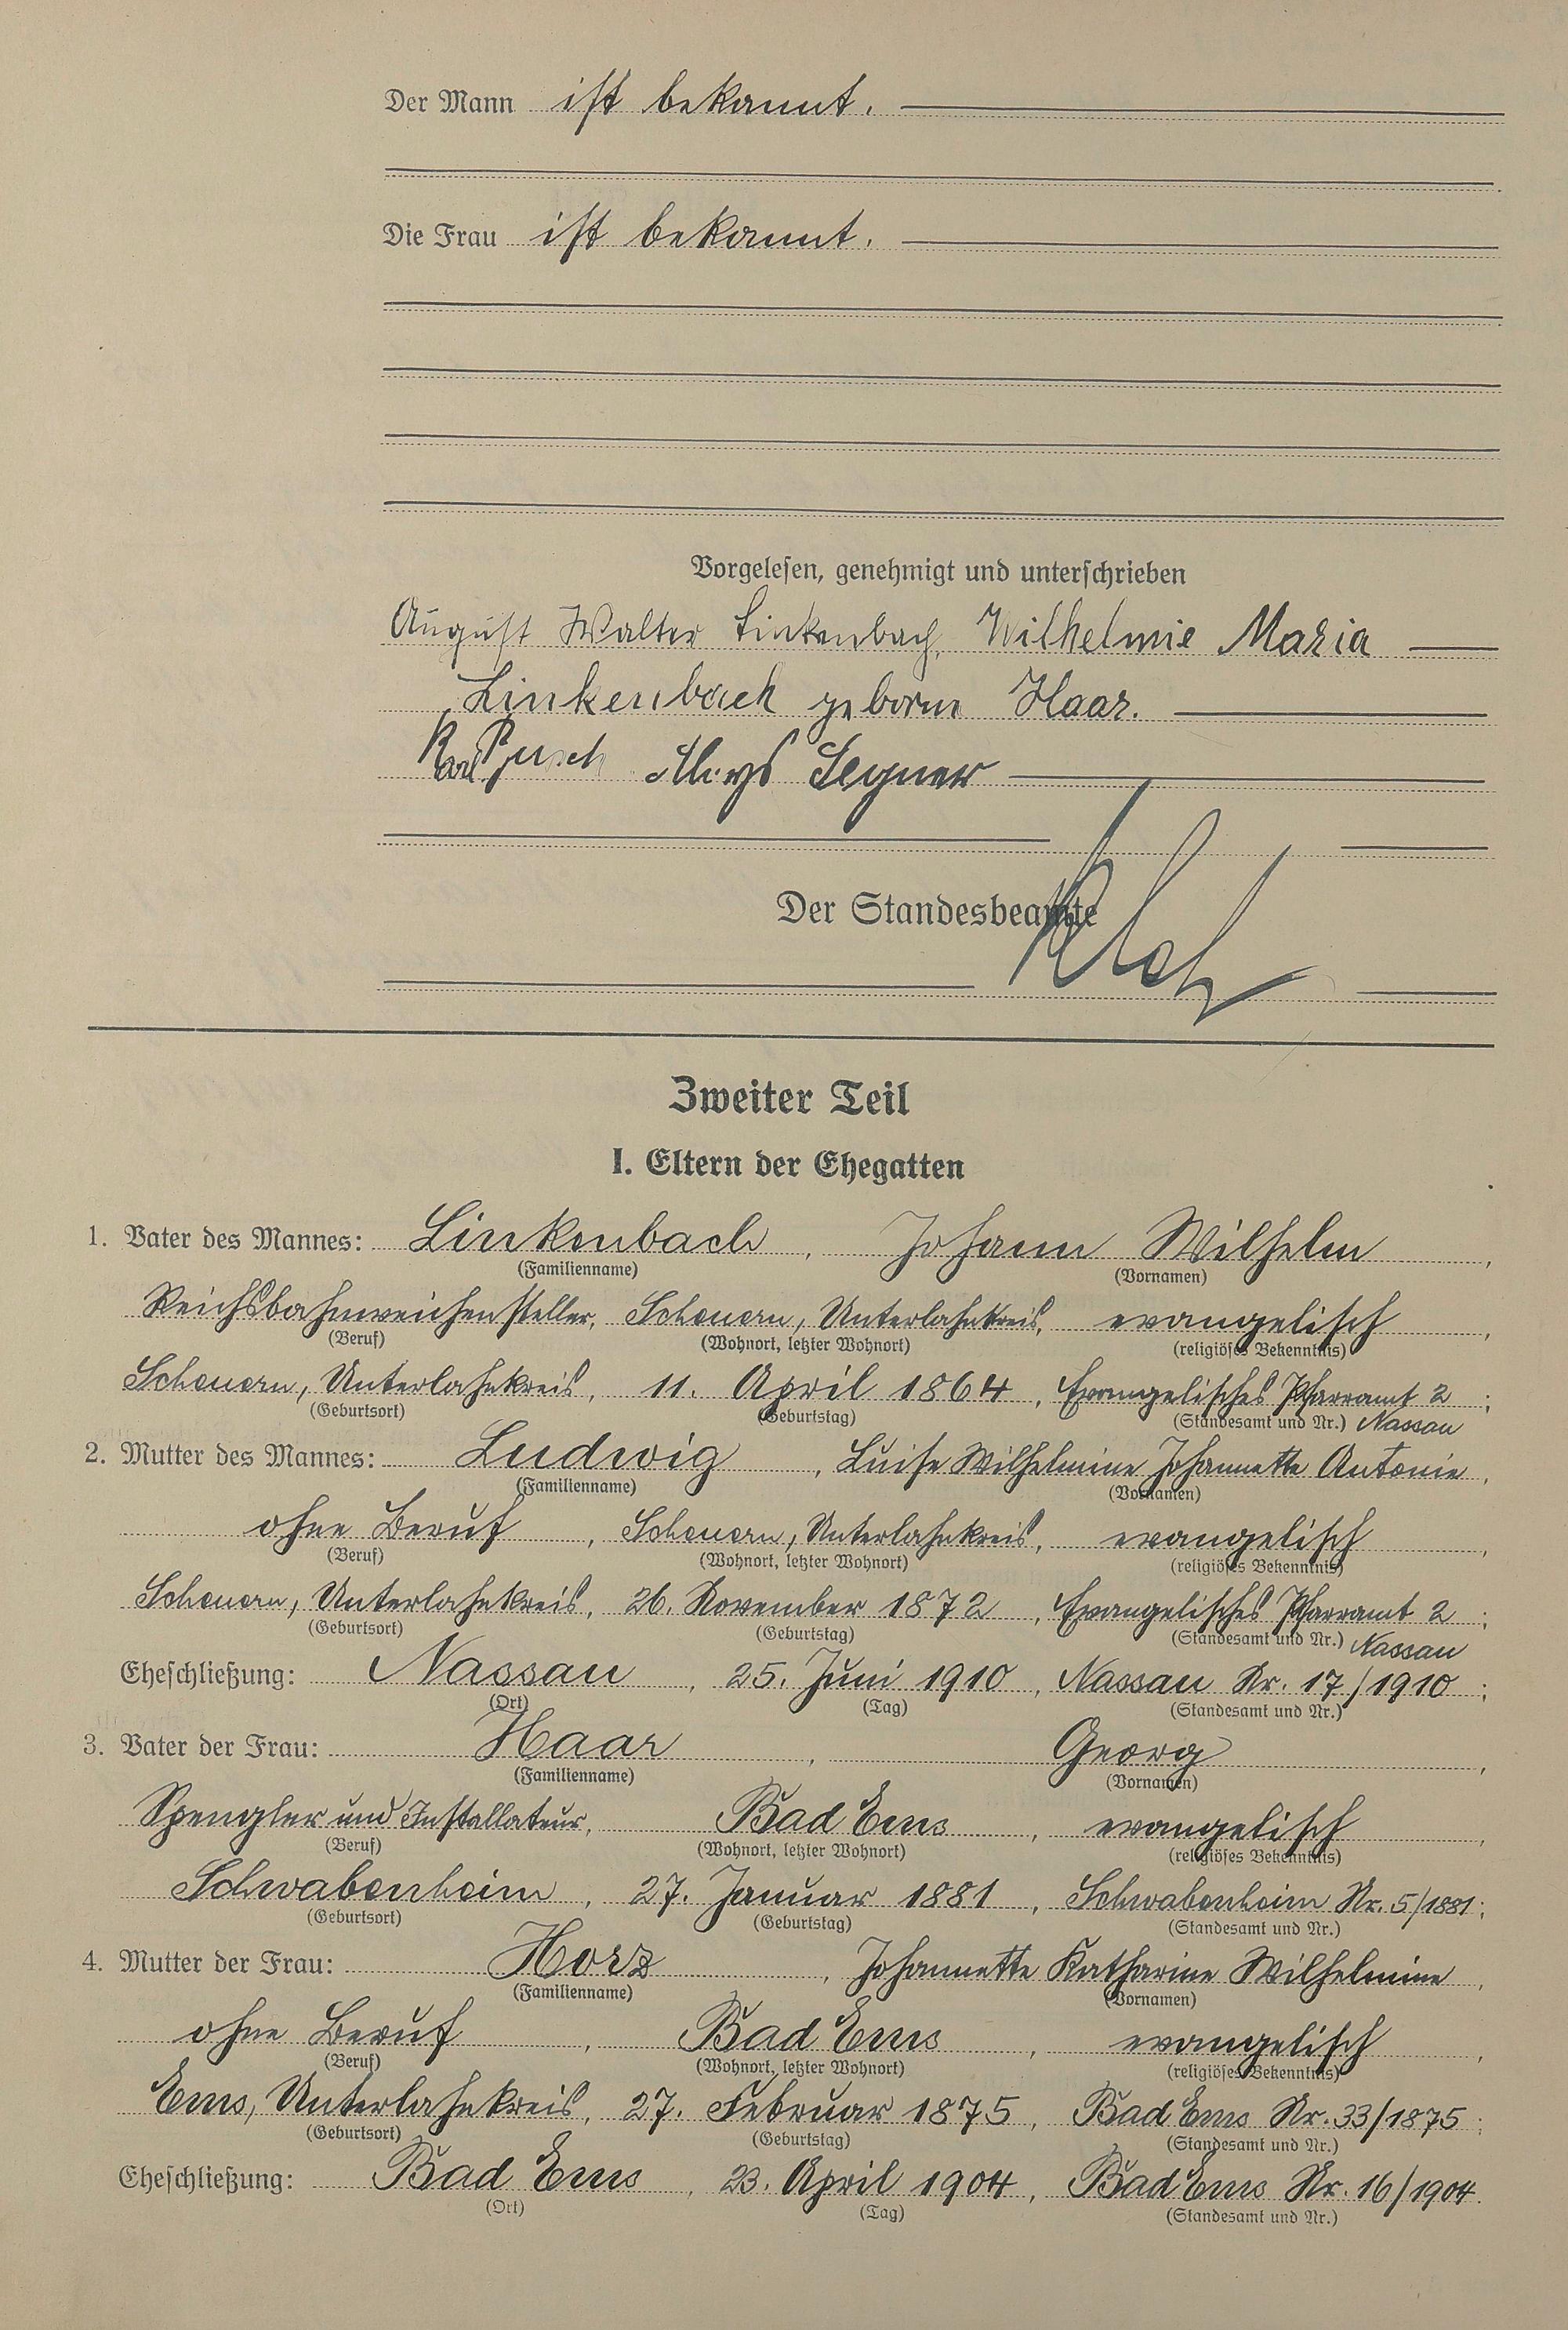 Der Mann ist bekannt.
Die Frau ist bekannt.
Vorgelesen, genehmigt und unterschrieben
August Walter Linkenbach, Wilhelmie Maria
Linkenbach geborne Haar.
Karl Aloys Segner
Der Standesbeamte
Zweiter Teil
I. Eltern der Ehegatten
1. Vater des Mannes: Linkenbach, Johann Wilhelm,
(Familienname) (Vornamen)
Reichsbahnweichensteller, Scheuern, Unterlahnkreis, evangelisch,
(Beruf) (Wohnort, letzter Wohnort) (religiöses Bekenntnis)
Scheuern, Unterlahnkreis, 11. April 1864, Evangelisches Pfarramt 2;
(Geburtsort) (Geburtstag) (Standesamt und Nr.) Nassau
2. Mutter des Mannes: Ludwig, Luise Wilhelmine Johannette Antonie,
(Familienname) (Vornamen)
ohne Beruf, Scheuern, Unterlahnkreis, evangelisch,
(Beruf) (Wohnort, letzter Wohnort) (religiöses Bekenntnis)
Scheuern, Unterlahnkreis, 26. November 1872, Evangelisches Pfarramt 2;
(Geburtsort) (Geburtstag) (Standesamt und Nr.) Nassau
Eheschließung: Nassau, 25. Juni 1910, Nassau Nr. 17/1910;
(Ort) (Tag) (Standesamt und Nr.)
3. Vater der Frau: Haar, Georg,
(Familienname) (Vornamen)
Spengler und Installateur, Bad Ems, evangelisch,
(Beruf) (Wohnort, letzter Wohnort) (religiöses Bekenntnis)
Schwabenheim, 27. Januar 1881, Schwabenheim Nr. 5/1881;
(Geburtsort) (Geburtstag) (Standesamt und Nr.)
4. Mutter der Frau: Horz, Johannette Katharine Wilhelmine,
(Familienname) (Vornamen)
ohne Beruf, Bad Ems, evangelisch,
(Beruf) (Wohnort, letzter Wohnort) (religiöses Bekenntnis)
Ems, Unterlahnkreis, 27. Februar 1875, Bad Ems Nr. 33/1875;
(Geburtsort) (Geburtstag) (Standesamt und Nr.)
Eheschließung: Bad Ems, 23. April 1904, Bad Ems Nr. 16/1904.
(Ort) (Tag) (Standesamt und Nr.)